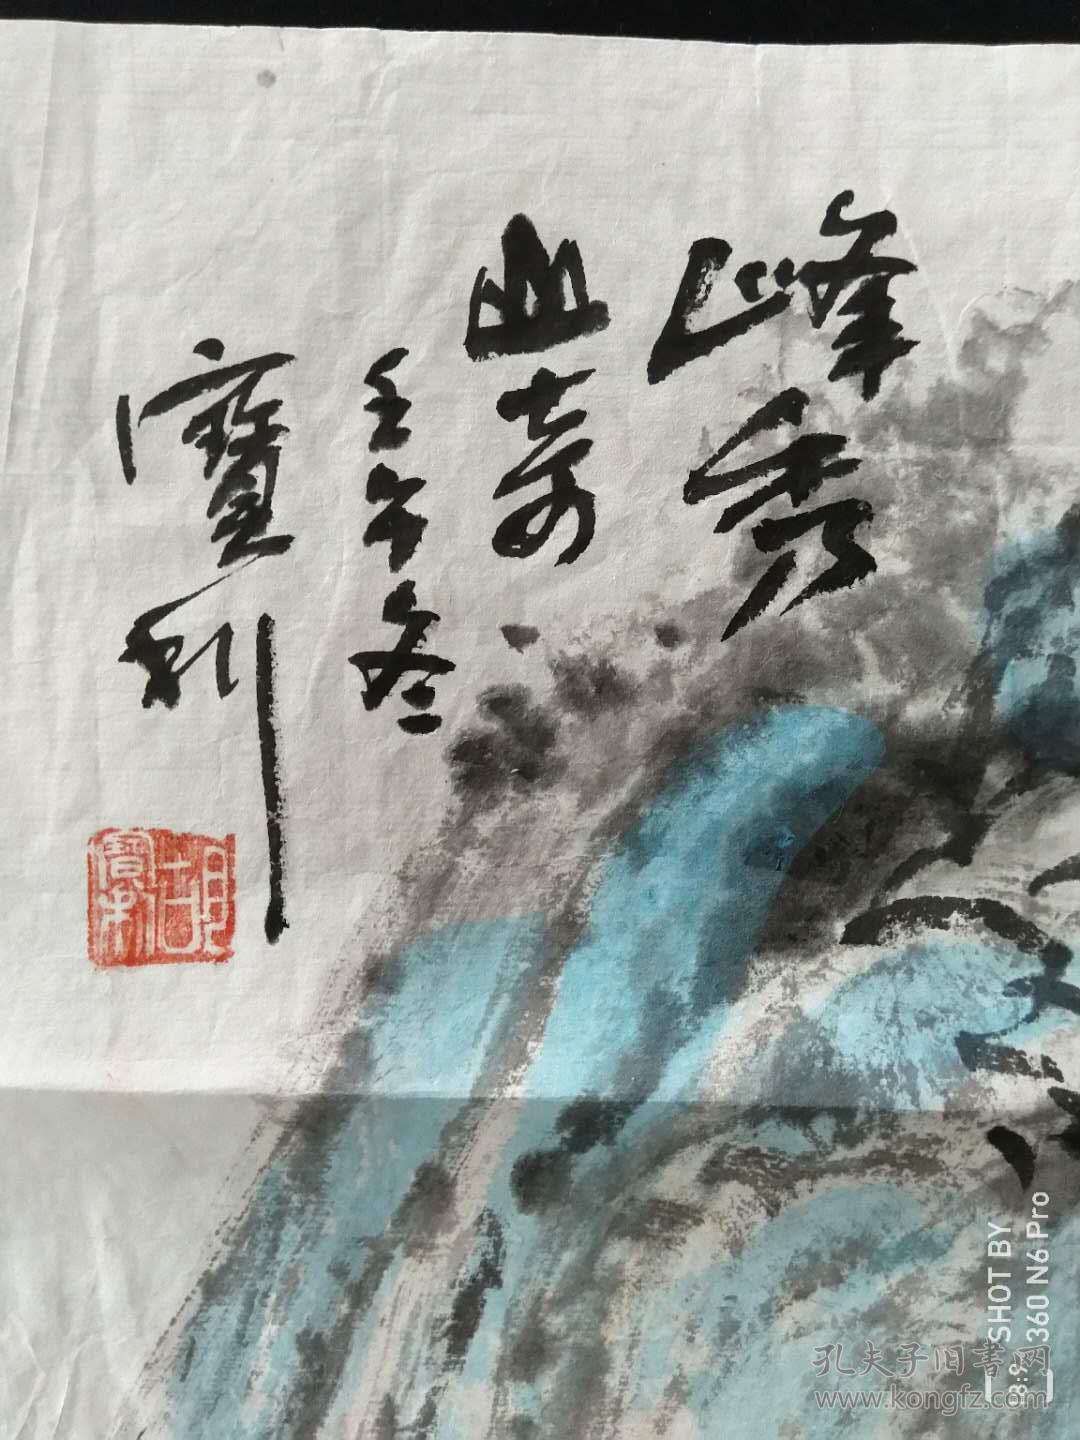 峰秀
山奇
壬午冬
寶利
胡寶利
SHOT BY
360 N6 Pro
孔夫子旧书网
www.kongfz.com